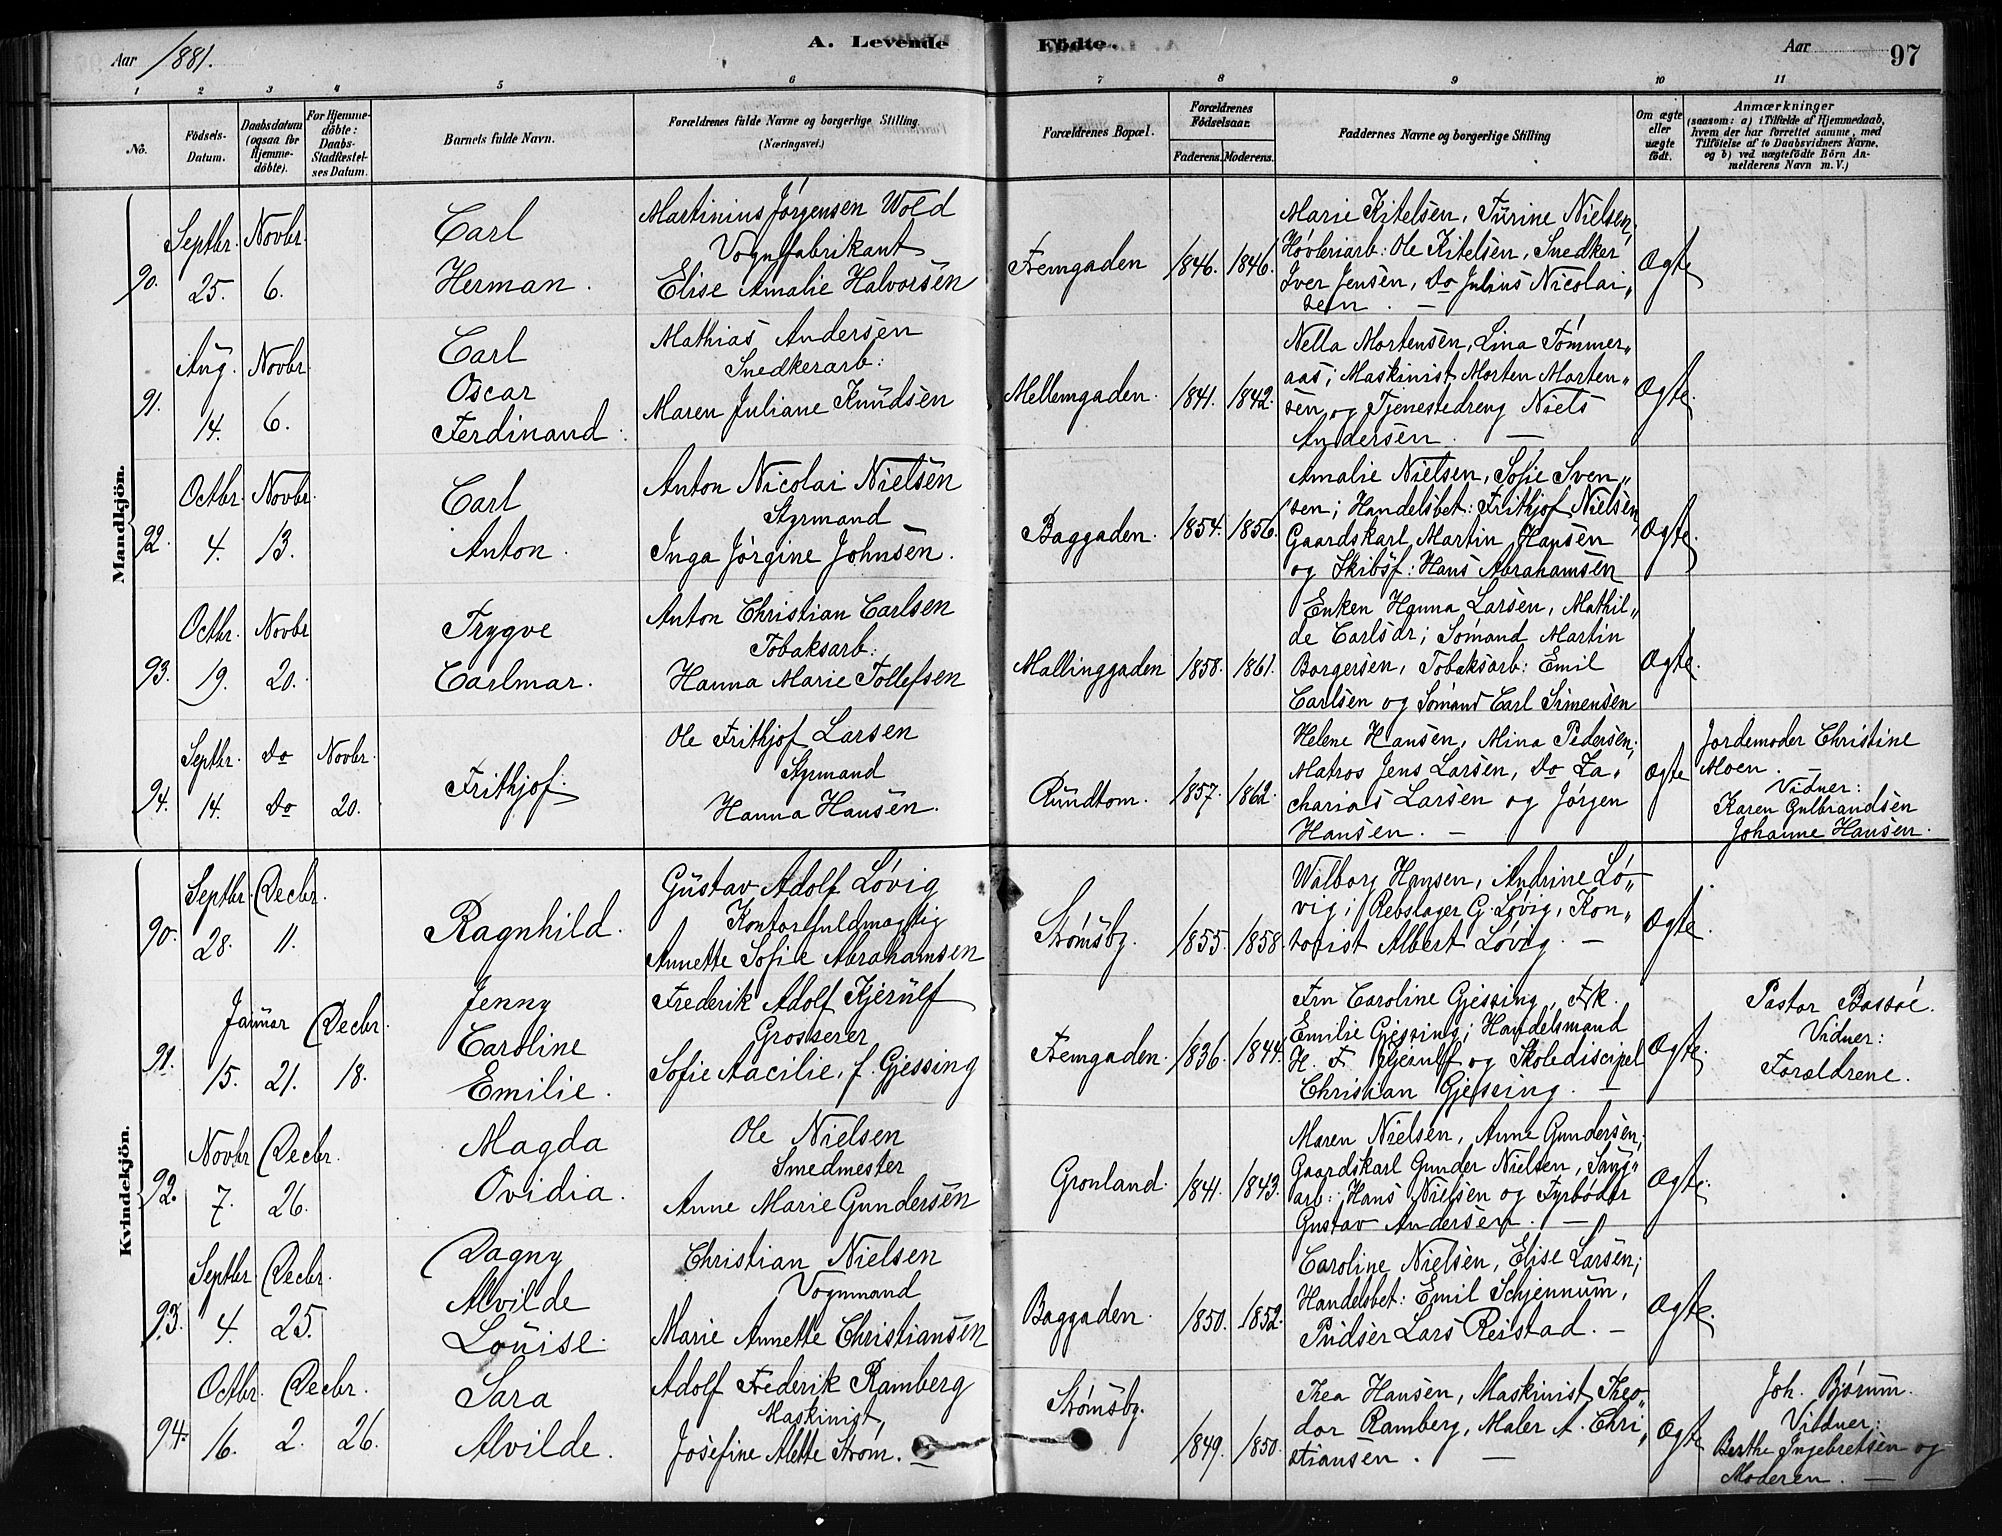 Aar 1881. A. Levende Födte. Aar 97
1 2 3 4 5 6 7 8 9 10 11
No.
Födsels-
Datum.
Daabsdatum
(ogsaa for
Hjemme-
döbte).
For Hjemme-
döbte:
Daabs-
Stadfæstel-
ses Datum.
Barnets fulde Navn.
Forældrenes fulde Navne og borgerlige Stilling.
(Næringsvei.)
Forældrenes Bopæl.
Forældrenes
Födselsaar.
Faderens. Moderens.
Faddernes Navne og borgerlige Stilling
Om ægte
eller
uægte
födt.
Anmærkninger
(saasom: a) i Tilfælde af Hjemmedaab,
hvem der har forrettet samme, med
Tilföielse af to Daabsvidners Navne,
og b) ved uægtefödte Börn An-
melderens Navn m.V.)
Mandkjön.
90.
Septbr.
25.
Novbr.
6.
Carl
Herman.
Martinius Jörgensen Wold
Vognfabrikant
Elise Amalie Halvorsen
Fremgaden
1846. 1846.
Marie Kitelsen, Turine Nielsen,
Høvleriarb: Ole Kitelsen, Snedker
Iver Jensen, Do Julius Nicolai„
sen. —
Ægte
91.
Aug.
14.
Novbr.
6.
Carl
Oscar
Ferdinand.
Mathias Andersen
Snedkerarb:
Maren Juliane Knudsen
Mellemgaden.
1841. 1842.
Nella Mortensen, Lina Tömmer„
aas; Maskinist Morten Morten„
sen og Tjenestedreng Niels
Andersen. —
Ægte.
92.
Octbr.
4.
Novbr.
13.
Carl
Anton.
Anton Nicolai Nielsen
Styrmand
Inga Jörgine Johnsen.
Baggaden.
1854. 1856.
Amalie Nielsen, Sofie Sven„
sen; Handelsbet: Frithjof Nielsen,
Gaardskarl Martin Hansen
og Skibsf: Hans Abrahamsen
Ægte.
93.
Octbr.
19.
Novbr
20.
Trygve
Carlmar.
Anton Christian Carlsen
Tobaksarb:
Hanna Marie Tollefsen
Mallinggaden
1858. 1861.
Enken Hanna Larsen, Mathil„
de Carlsdr; Sömand Martin
Borgersen, Tobaksarb: Emil
Carlsen og Sömand Carl Simensen
Ægte.
94.
Septbr.
14.
Do
Do
Novbr.
20.
Frithjof.
Ole Frithjof Larsen
Styrmand
Hanna Hansen.
Rundtom.
1857. 1862.
Helene Hansen, Mina Pedersen;
Matros Jens Larsen, Do Za„
charias Larsen og Jörgen
Hansen. —
Ægte
Jordemoder Christine
Moen.
Vidner:
Karen Gulbrandsen
Johanne Hansen.
Kvindekjön.
90.
Septbr.
28.
Decbr.
11.
Ragnhild.
Gustav Adolf Lövig
Kontorfuldmægtig
Annette Sofie Abrahamsen
Strömsby.
1855. 1858.
Walborg Hansen, Andrine Lö„
vig; Rebslager G. Lövig, Kon„
torist Albert Lövig. —
Ægte.
91.
Januar
15. 21.
Decbr.
18.
Jenny
Caroline
Emilie.
Frederik Adolf Kjerulf
Grosserer
Sofie Aacilie, f. Gjessing
Fremgaden.
1836. 1844.
Fru Caroline Gjessing, Frk.
Emilie Gjessing; Handelsmand
H. F. Kjerulf og Skolediscipel
Christian Gjessing. —
Ægte.
Pastor Bassöe.
Vidner:
Forældrene.
92.
Novbr
7.
Decbr.
26.
Magda
Ovidia.
Ole Nielsen
Smedmester
Anne Marie Gundersen
Gronland.
1841. 1843.
Maren Nielsen, Anne Gundersen;
Gaardskarl Gunder Nielsen, Saug„
arb: Hans Nielsen og Fyrböder
Gustav Andersen. —
Ægte.
93.
Septbr.
4.
Decbr.
25.
Dagny
Alvilde
Louise.
Christian Nielsen
Vognmand
Marie Annette Christiansen
Baggaden.
1850. 1852.
Caroline Nielsen, Elise Larsen;
Handelsbet: Emil Schjennum,
Pudser Lars Reistad. —
Ægte.
94.
Octbr.
16. 2.
Decbr.
26.
Sara
Alvilde.
Adolf Frederik Ramberg
Maskinist,
Josefine Alette Ström. —
Strömsby.
1849. 1850.
Thea Hansen, Maskinist Theo„
dor Ramberg, Maler A. Chri„
stiansen. —
Ægte
Joh. Björum.
Vidner:
Berthe Ingebretsen og
Moderen. —